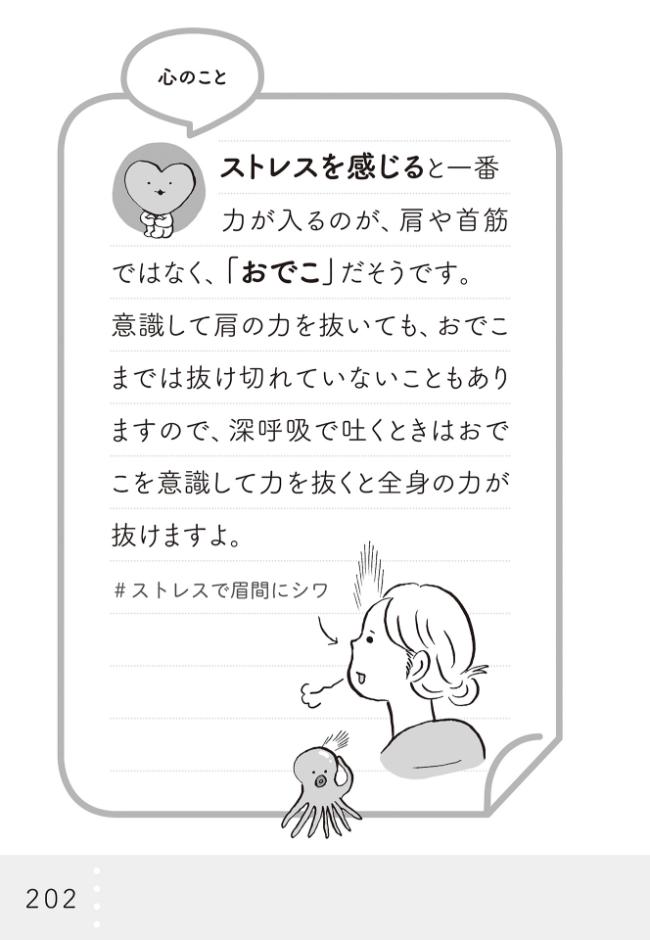 心のこと
ストレスを感じると一番
力が入るのが、肩や首筋
ではなく、「おでこ」だそうです。
意識して肩の力を抜いても、おでこ
までは抜け切れていないこともあり
ますので、深呼吸で吐くときはおで
こを意識して力を抜くと全身の力が
抜けますよ。
#ストレスで眉間にシワ
202